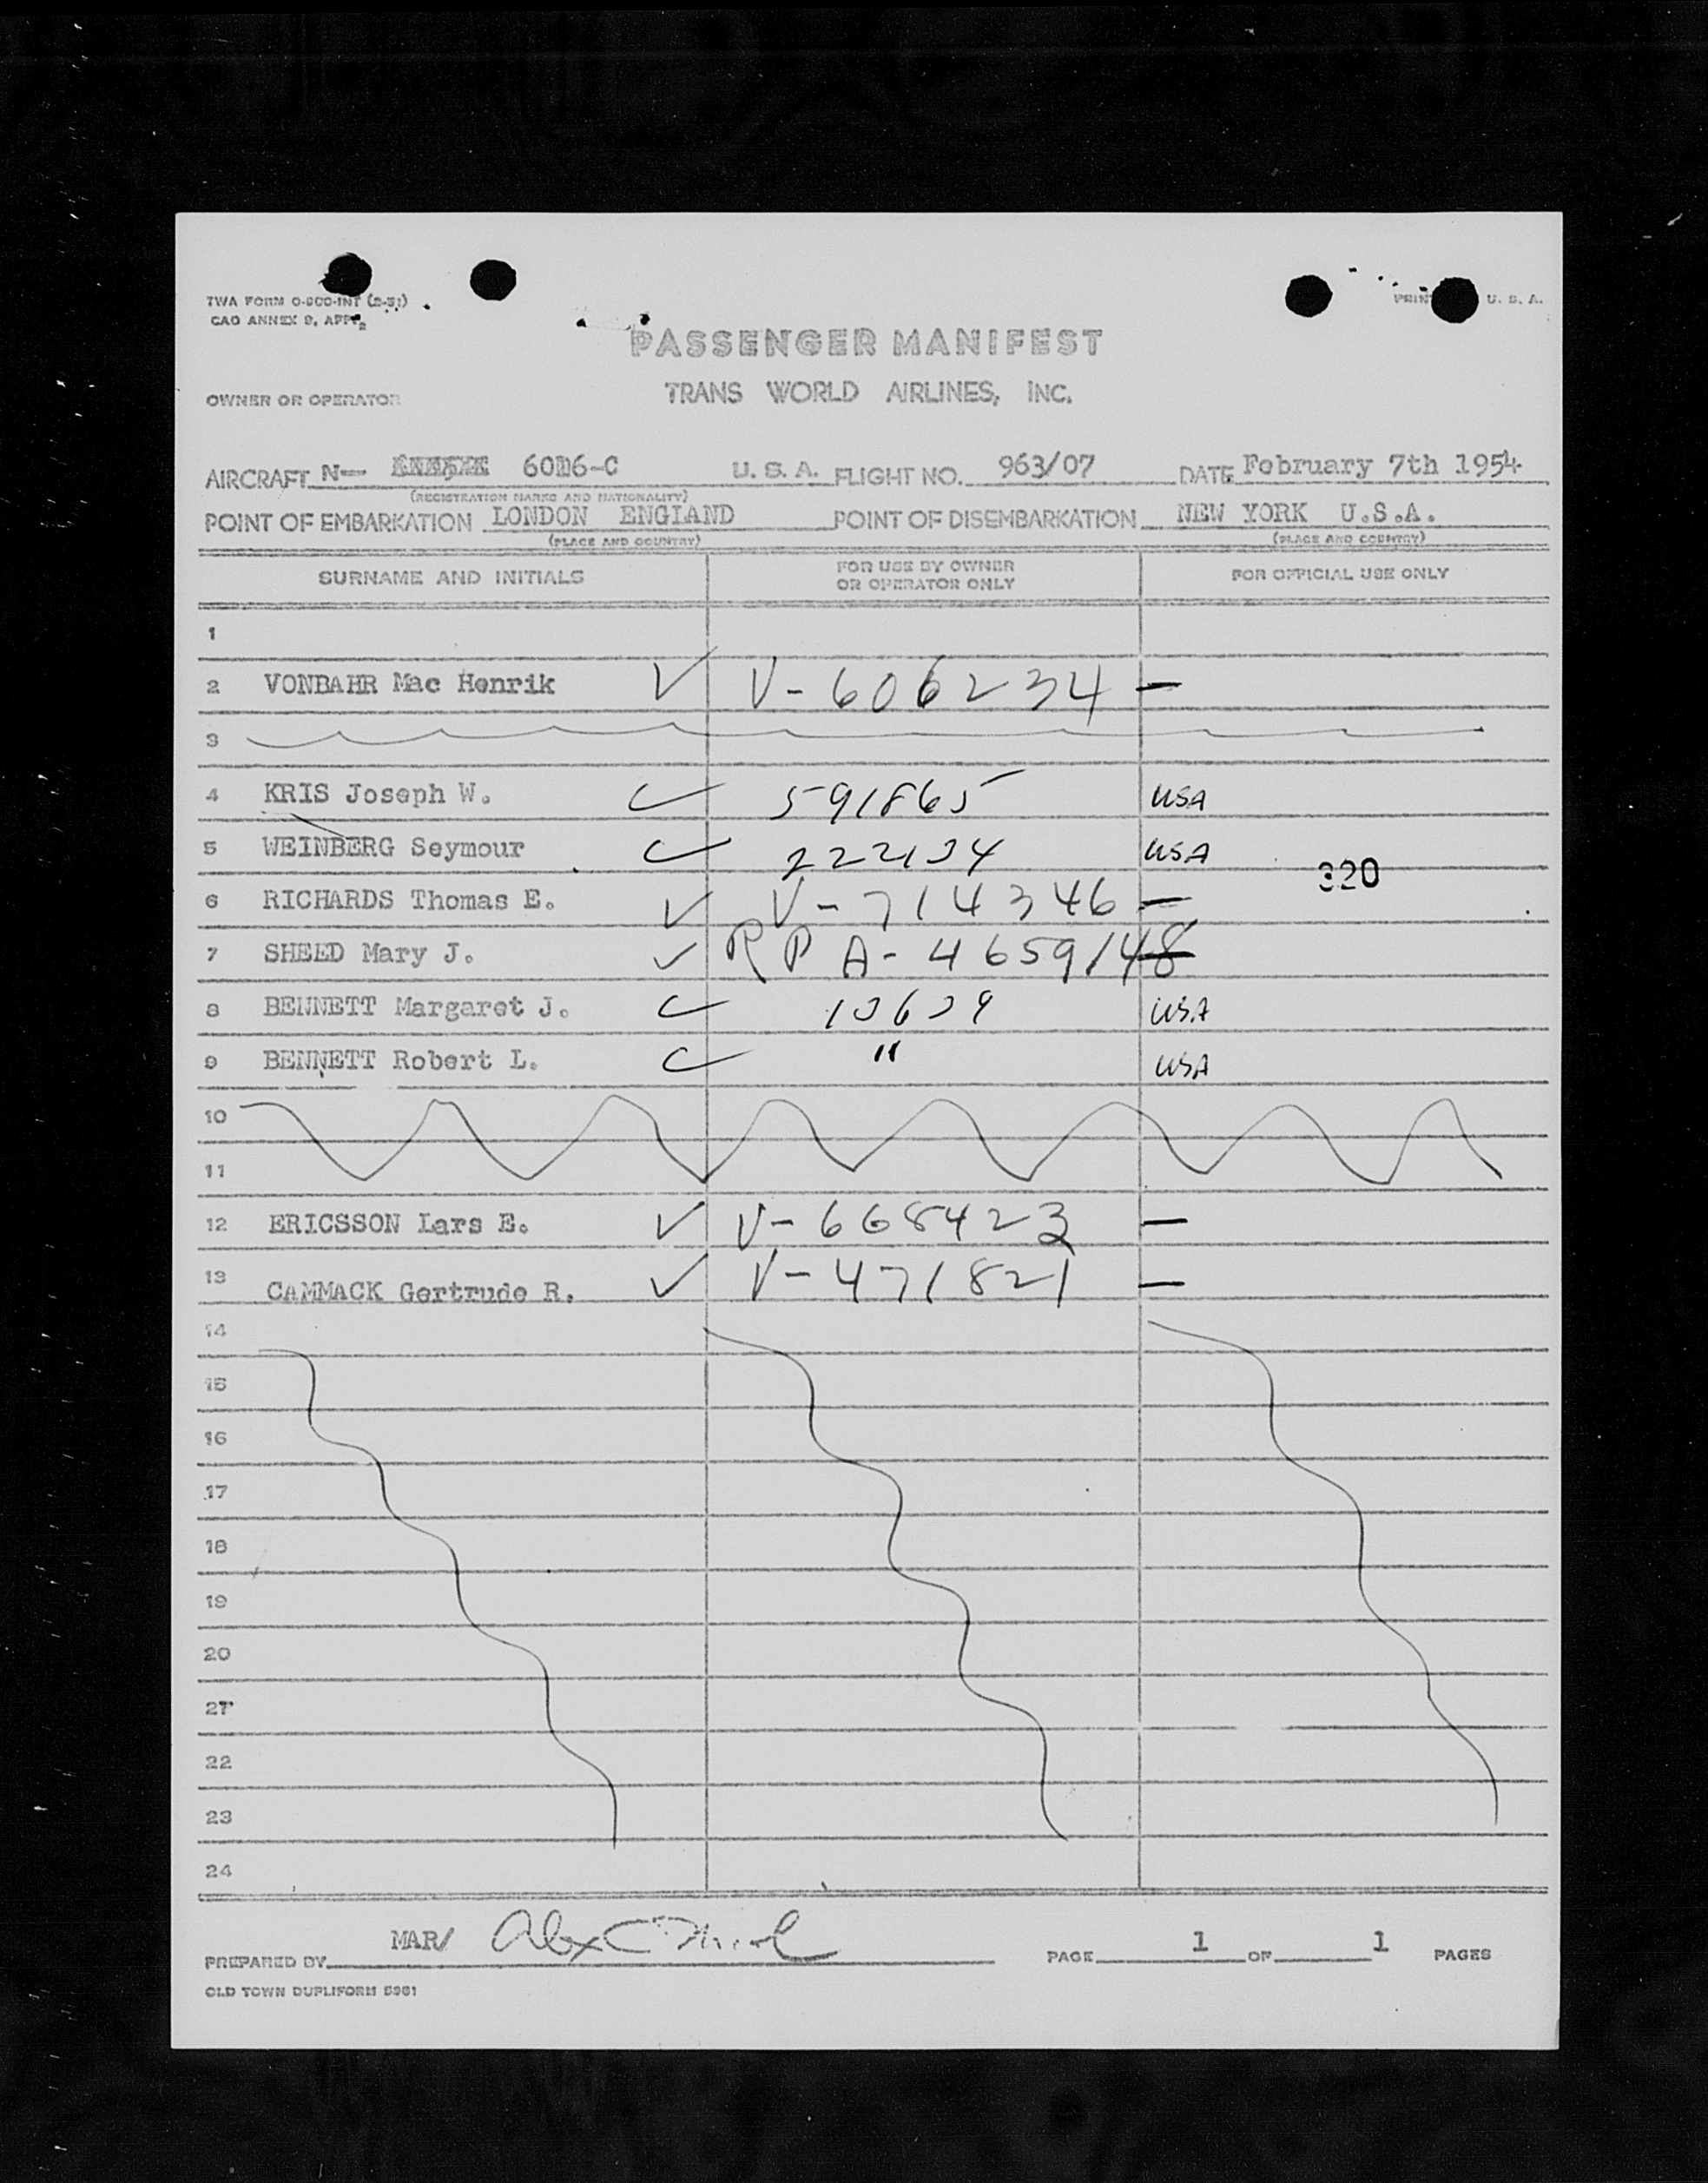 TWA FORM O-900-INT (2-51)
CAO ANNEX 9, APP. 2
U. S. A.
PASSENGER MANIFEST
OWNER OR OPERATOR TRANS WORLD AIRLINES, INC.
AIRCRAFT N- 6026-C U. S. A. FLIGHT NO. 963/07 DATE February 7th 1954
(REGISTRATION MARKS AND NATIONALITY)
POINT OF EMBARKATION LONDON ENGLAND POINT OF DISEMBARKATION NEW YORK U.S.A.
(PLACE AND COUNTRY) (PLACE AND COUNTRY)
SURNAME AND INITIALS FOR USE BY OWNER OR OPERATOR ONLY FOR OFFICIAL USE ONLY
1
2 VONBAHR Mac Henrik V-606234 —
3
4 KRIS Joseph W. 591865 USA
5 WEINBERG Seymour 222134 USA
320
6 RICHARDS Thomas E. V-714346 —
7 SHEED Mary J. R P A-4659148
8 BENNETT Margaret J. 13639 USA
9 BENNETT Robert L. " USA
10
11
12 ERICSSON Lars E. V-668423 —
13 CAMMACK Gertrude R. V-471821 —
14
15
16
17
18
19
20
21
22
23
24
PREPARED BY MAR/ PAGE 1 OF 1 PAGES
OLD TOWN DUPLIFORM 5981